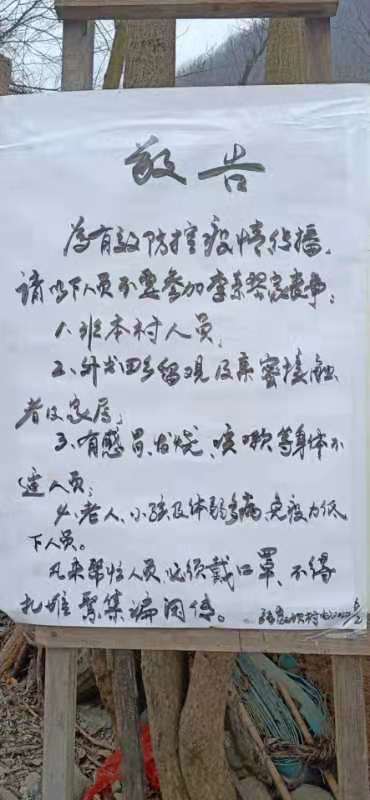 敬告
为有效防控疫情传播,
请以下人员不要参加李来琴家丧事:
1、非本村人员;
2、外出回乡留观及亲密接触
者及家属;
3、有感冒、发烧、咳嗽等身体不
适人员;
4、老人、小孩及体弱多病、免疫力低
下人员。
凡来帮忙人员,必须戴口罩,不得
扎堆聚集谝闲传。